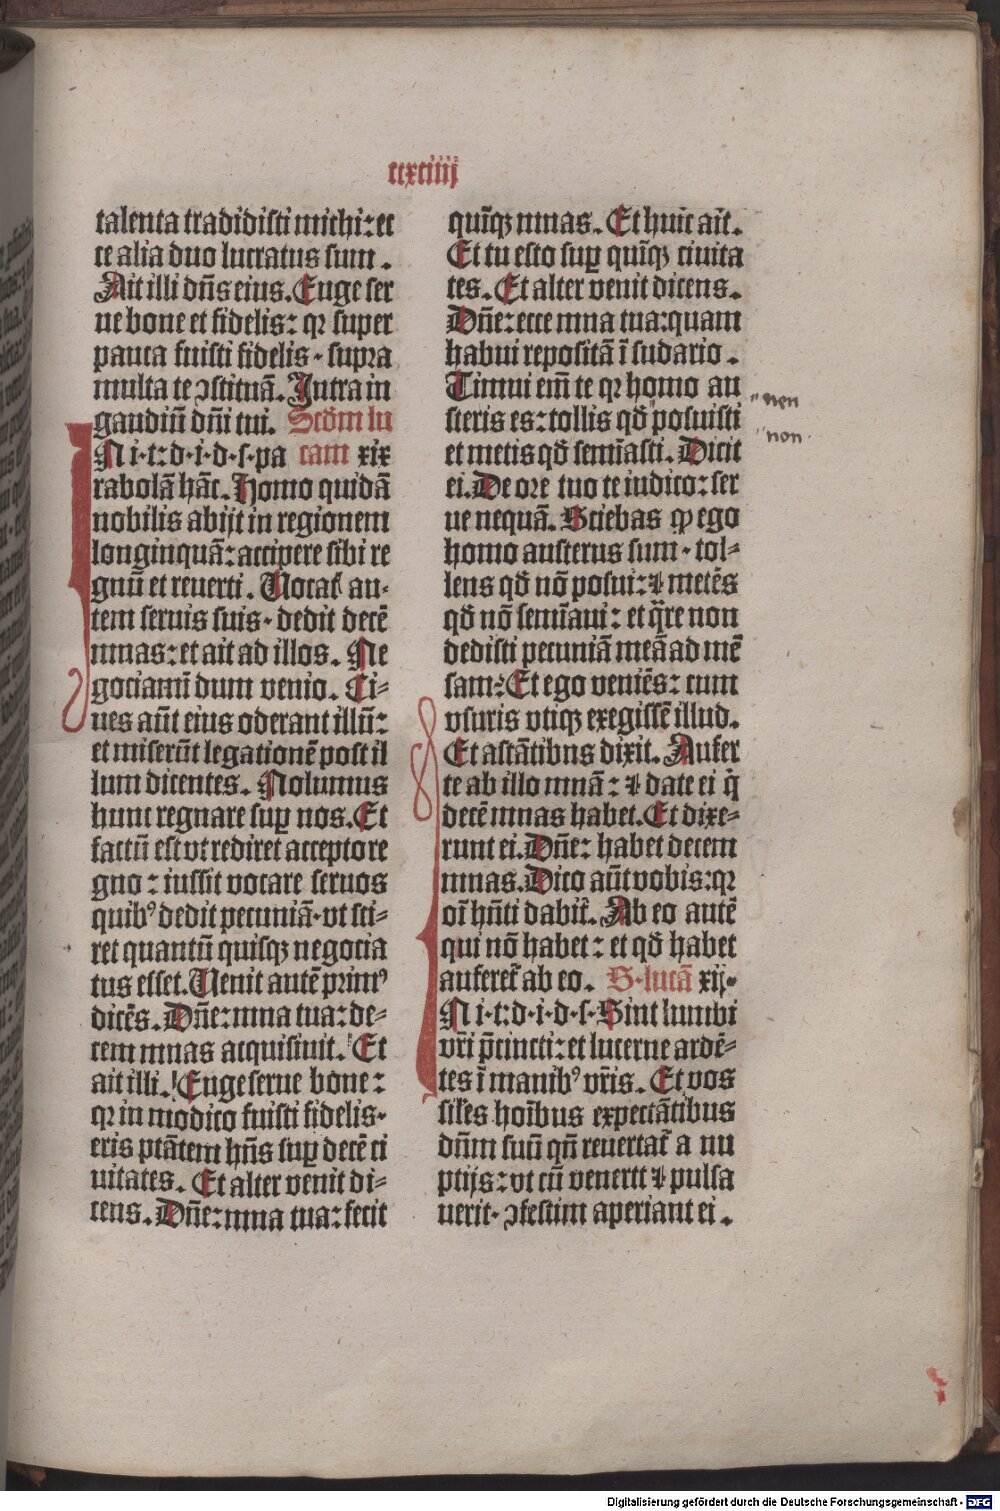 ccxciiij
talenta tradidisti michi: ec
ce alia duo lucratus sum.
Ait illi dñs eius. Euge ser
ue bone et fidelis: qꝛ super
pauca fuisti fidelis · supra
multa te ↄstituã. Intra in
gaudiũ dñi tui. Scd̃m lu
N i·t:d·i·d·s·pa cam xix
rabolã hãc. Homo quidã
nobilis abijt in regionem
longinquã: accipere sibi re
gnũ et reuerti. Uocat᷑ au-
tem seruis suis · dedit decẽ
mnas: et ait ad illos. Ne
gociamĩ dum venio. Ci-
ues aũt eius oderant illũ:
et miserũt legationẽ post il
lum dicentes. Nolumus
hunc regnare suꝑ nos. Et
factũ est vt rediret accepto re
gno: iussit vocare seruos
quibꝰ dedit pecuniã · vt sci-
ret quantũ quisqꝫ negocia
tus esset. Uenit autẽ primꝰ
dicẽs. Dñe: mna tua: de-
cem mnas acquisiuit. Et
ait illi. Euge serue bone:
qꝛ in modico fuisti fidelis·
eris ptãtem hñs suꝑ decẽ ci
uitates. Et alter venit di-
cens. Dñe: mna tua: fecit
quĩqꝫ mnas. Et huic aĩt.
Et tu esto suꝑ quĩqꝫ ciuita
tes. Et alter venit dicens.
Dñe: ecce mna tua: quam
habui repositã ĩ sudario.
Timui em̃ te qꝛ homo au
steris es: tollis qd̃ posuisti
nen
et metis qd̃ semĩasti. Dicit
non
ei. De ore tuo te iudico: ser
ue nequã. Sciebas ꝙ ego
homo austerus sum · tol-
lens qd̃ nõ posui: ⁊ metẽs
qd̃ nõ semĩaui: et q̃re non
dedisti pecuniã meã ad mẽ
sam? Et ego veniẽs: cum
vsuris vtiqꝫ exegissẽ illud.
Et astãtibus dixit. Aufer
te ab illo mnã: ⁊ date ei q̃
decẽ mnas habet. Et dixe-
runt ei. Dñe: habet decem
mnas. Dico aũt vobis: qꝛ
oĩ hñti dabit᷑. Ab eo autẽ
qui nõ habet: et qd̃ habet
auferet᷑ ab eo. S·lucã xij·
N i·t:d·i·d·s·Sint lumbi
vr̃i p̃cincti: et lucerne ardẽ-
tes ĩ manibꝰ vr̃is. Et vos
sil̃es hoĩbus expectãtibus
dñm suũ qñ reuertat᷑ a nu
ptijs: vt cũ venerit ⁊ pulsa
uerit · ↄfestim aperiant ei.
Digitalisierung gefördert durch die Deutsche Forschungsgemeinschaft - DFG